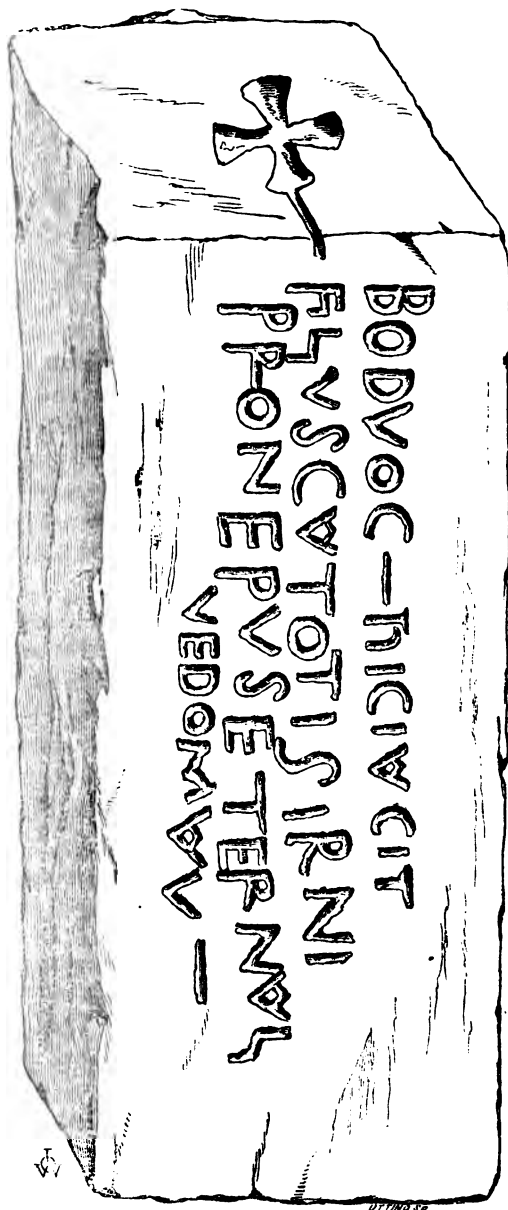 BODVOC—hICIACIT
FLVSCATOTISIRNI
PPONEPVSETERNAL
VEDOMAV—
UTTING SC.